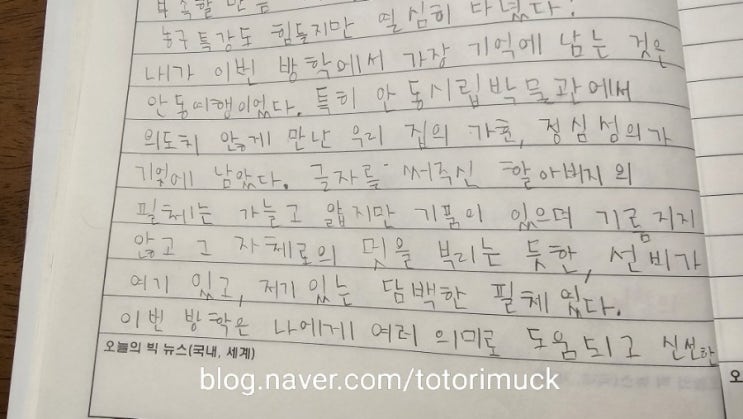 부족할 만큼
농구 특강도 힘들지만 열심히 다녔다.
내가 이번 방학에서 가장 기억에 남는 것은
안동여행이었다. 특히 안동시립박물관에서
의도치 않게 만난 우리 집의 가훈, 정심성의가
기억에 남았다. 글자를 써주신 할아버지의
필체는 가늘고 얇지만 기품이 있으며 기름지지
않고 그 자체로의 멋을 부리는 듯한, 선비가
여기 있고, 저기 있는 담백한 필체였다.
이번 방학은 나에게 여러 의미로 도움되고 신선한
오늘의 빅 뉴스(국내, 세계)
오
blog.naver.com/totorimuck